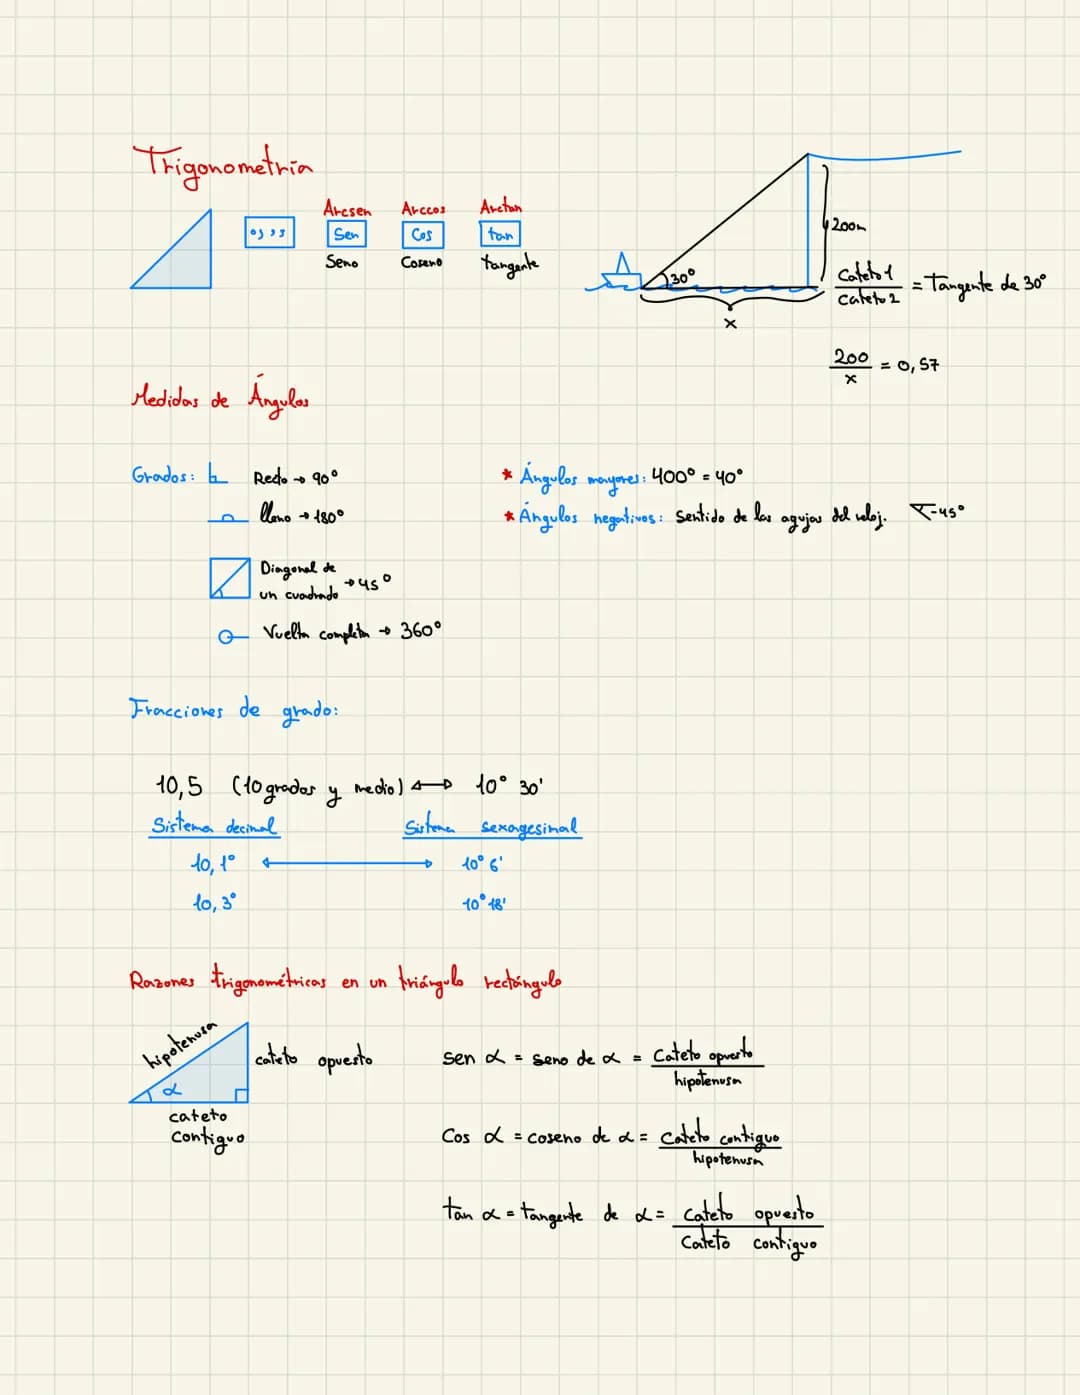 Trigonometría
Arcsen Arccos Arctan
o,,, Sen Cos tan
Seno Coseno tangente
30°
200m
x
Cateto 1 / Cateto 2 = Tangente de 30°
200 / x = 0,57
Medidas de Ángulos
Grados: Recto → 90°
llano → 180°
Diagonal de
un cuadrado → 45°
Vuelta completa → 360°
* Ángulos mayores: 400° = 40°
* Ángulos negativos: Sentido de las agujas del reloj. -45°
Fracciones de grado:
10,5 (10 grados y medio) ↔ 10° 30'
Sistema decimal Sistema sexagesimal
10,1° ↔ 10° 6'
10,3° 10° 18'
Razones trigonométricas en un triángulo rectángulo
hipotenusa
cateto opuesto
α
cateto
contiguo
sen α = seno de α = Cateto opuesto / hipotenusa
Cos α = coseno de α = Cateto contiguo / hipotenusa
tan α = tangente de α = Cateto opuesto / Cateto contiguo